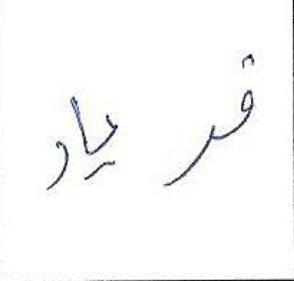 فر یاد